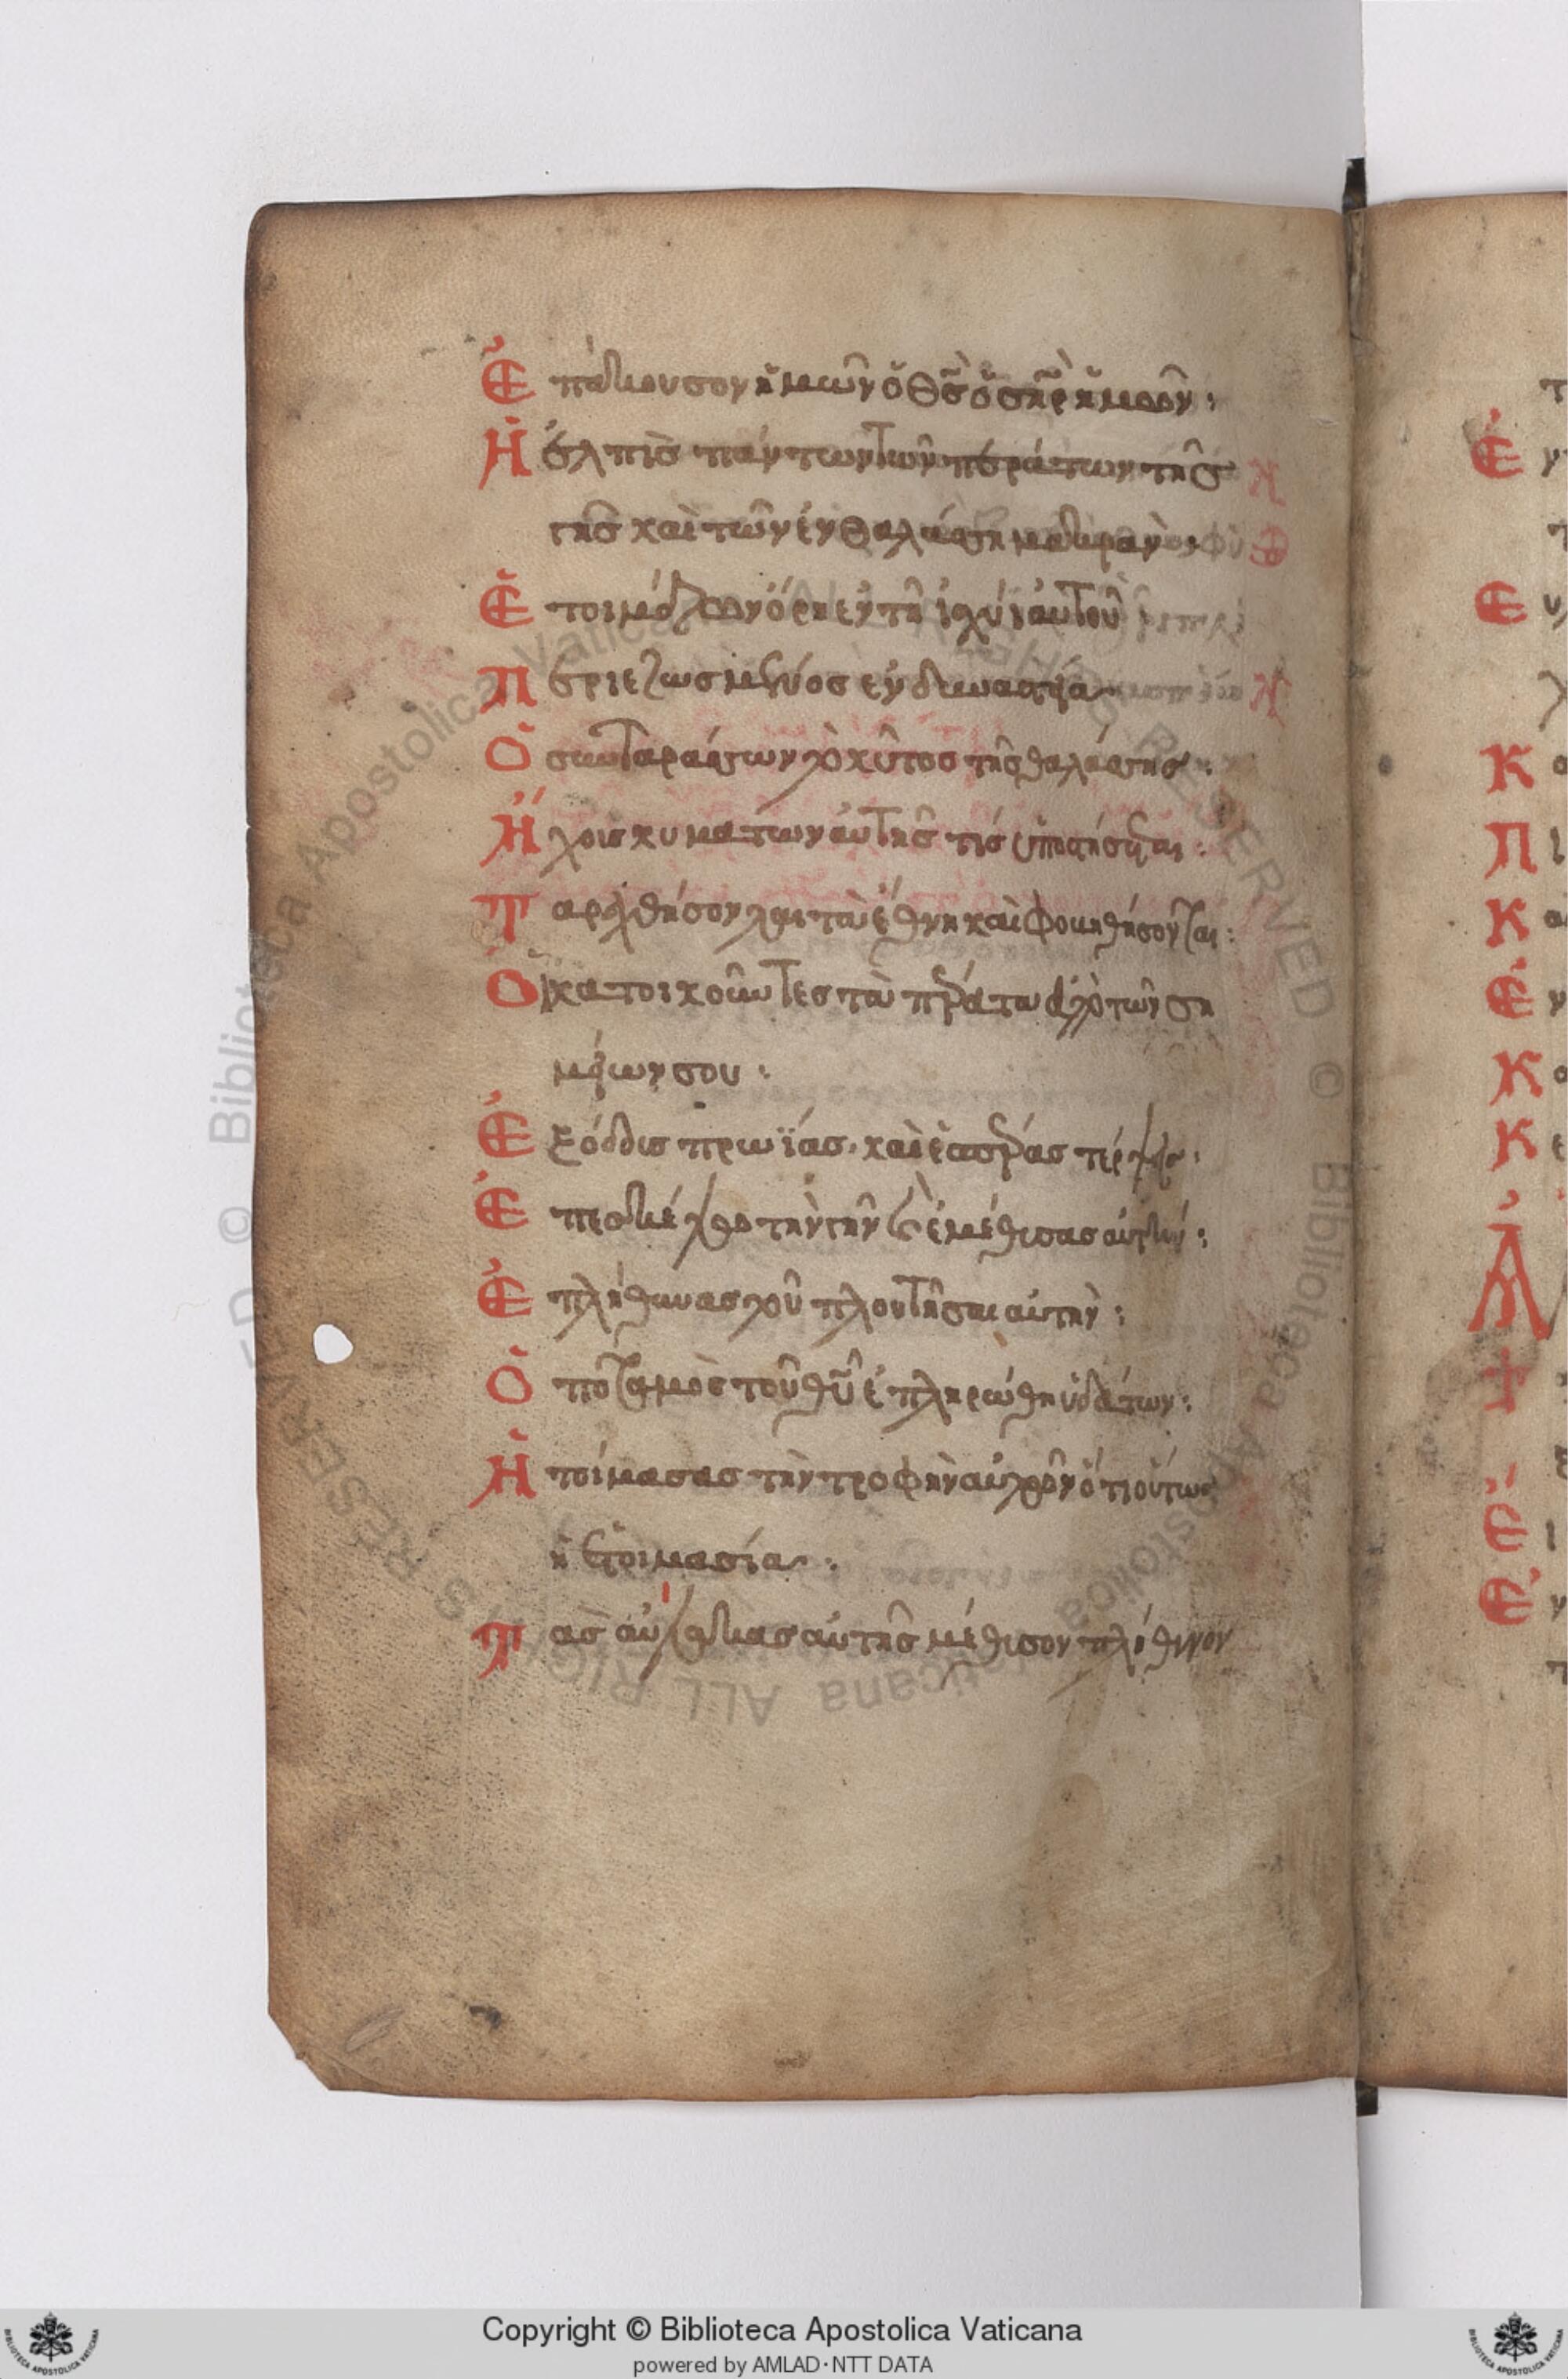 Ἐπάκουσον ἡμῶν ὁ θς ὁ σηρ ἡμῶν :
Ἡ ἐλπὶς πάντων τῶν περάτων τῆς
γῆς καὶ τῶν ἐν θαλάσση μακρὰν :
Ἑτοιμάζων ὄρη ἐν τῆ ἰσχύϊ αὐτοῦ
Περιεζωσμένος ἐν δυναστεία
Ὁ συνταράσσων τὸ κύτος τῆς θαλάσσης :
Ἤχοις κυμάτων αὐτῆς τίς ὑποστήσεται :
Ταραχθήσονται τὰ ἔθνη καὶ φοβηθήσονται :
Οἱ κατοικοῦντες τὰ πέρατα ἀπὸ τῶν ση
μείων σου :
Ἐξόδους πρωΐας καὶ ἑσπέρας τέρψεις :
Ἐπεσκέψω τὴν γῆν καὶ ἐμέθυσας αὐτὴν :
Ἐπλήθυνας τοῦ πλουτῆσαι αὐτὴν :
Ὁ ποταμὸς τοῦ θυ ἐπληρώθη ὑδάτων :
Ἡτοίμασας τὴν τροφὴν αὐτῶν ὅτι οὕτως
ἡ ἑτοιμασία :
Τὰς αὔλακας αὐτῆς μέθυσον πλήθυνον
Copyright © Biblioteca Apostolica Vaticana
powered by AMLAD·NTT DATA